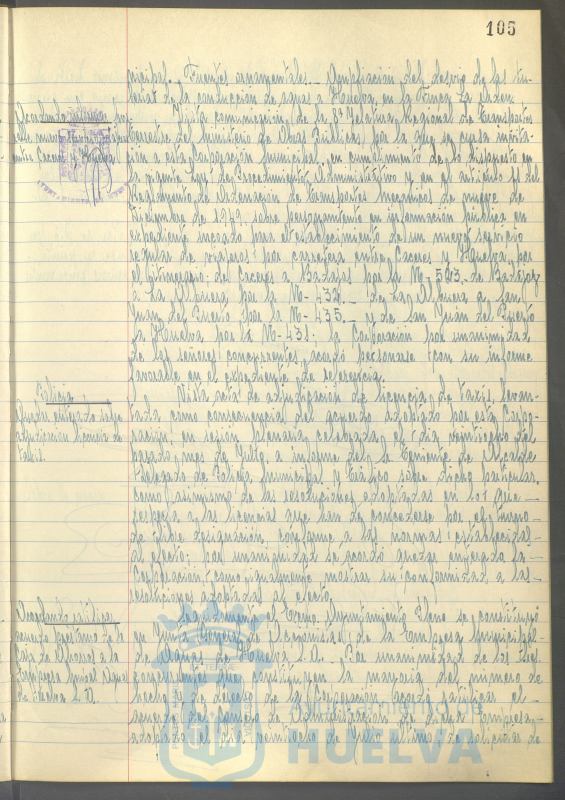 105
nicipal.- Fuentes ornamentales.- Ampliación del desvío de las tu-
berías de la conducción de aguas a Huelva, en la Finca La Orden.
Acordando informe
entre Cáceres y Huelva
Vista comunicación de la 8ª Jefatura Regional de Transportes
Terrestres del Ministerio de Obras Públicas, por la que se cursa invita-
ción a esta Corporación Municipal, en cumplimiento de lo dispuesto en
la vigente Ley de Procedimiento Administrativo y en el artículo 11 del
Reglamento de Ordenación de Transportes Mecánicos de nueve de
Diciembre de 1949 sobre personamiento en información pública en
expediente incoado para el establecimiento de un nuevo servicio
regular de viajeros por carretera entre Cáceres y Huelva, por
el itinerario: de Cáceres a Badajoz por la N-523.- de Badajoz
a La Albuera por la N-432.- de La Albuera a San
Juan del Puerto por la N-435.- y de San Juan del Puerto
a Huelva por la N-431. la Corporación por unanimidad
de los señores concurrentes, acordó personarse con su informe
favorable en el expediente de referencia.
Policía
Quedar enterado sobre
adjudicación licencias de
taxis.
Vista acta de adjudicación de licencias de taxis, levan-
tada como consecuencia del acuerdo adoptado por esta Corpo-
ración, en sesión plenaria celebrada el día veintiocho del
pasado mes de Julio, a informe del Sr. Teniente de Alcalde
Delegado de Policía Municipal y Tráfico sobre dicho particular,
como asimismo de las resoluciones adoptadas en lo que
respecta a las licencias que han de concederse por el turno
de libre designación, conforme a las normas establecidas
al efecto; por unanimidad se acordó quedar enterada la
Corporación, como igualmente mostrar su conformidad a las
resoluciones adoptadas al efecto.
Acordando ratificar
acuerdo préstamo de la
Caja de Ahorros a la
Empresa Munipal Aguas
de Huelva S.A.
Seguidamente el Excmo. Ayuntamiento Pleno se constituyó
en Junta General de Accionistas de la Empresa Municipal
de Aguas de Huelva S.A.- Por unanimidad de los Sres.
concurrentes, que constituyen la mayoría del número de
hecho y de derecho de la Corporación, acordó ratificar el
acuerdo del Consejo de Administración de dicha Empresa,
adoptado el día de Julio último, de solicitar de
HUELVA